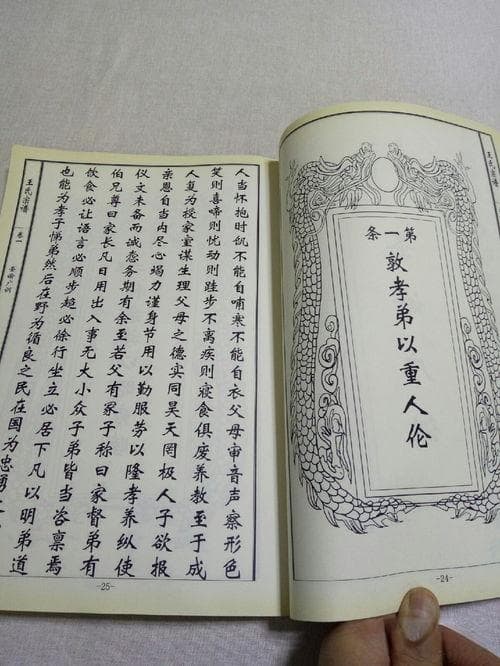 王氏宗谱
第一条
敦孝弟以重人伦
-24-
人当怀抱时饥不能自哺寒不能自衣父母审音声察形色
笑则喜啼则忧动则跬步不离疾则寝食俱废养教至于成
人复为授家室谋生理父母之德实同昊天罔极人子欲报
亲恩自当内尽心竭力谨身节用以勤服劳以隆孝养纵使
仪文未备而诚悫务期有余至若父有冢子称曰家督弟有
伯兄尊曰家长凡日用出入事无大小众子弟皆当咨禀焉
饮食必让语言必顺步趋必徐行坐立必居下凡以明弟道
也能为孝子悌弟然后在野为循良之民在国为忠勇
王氏宗谱
卷一
圣谕广训
-25-